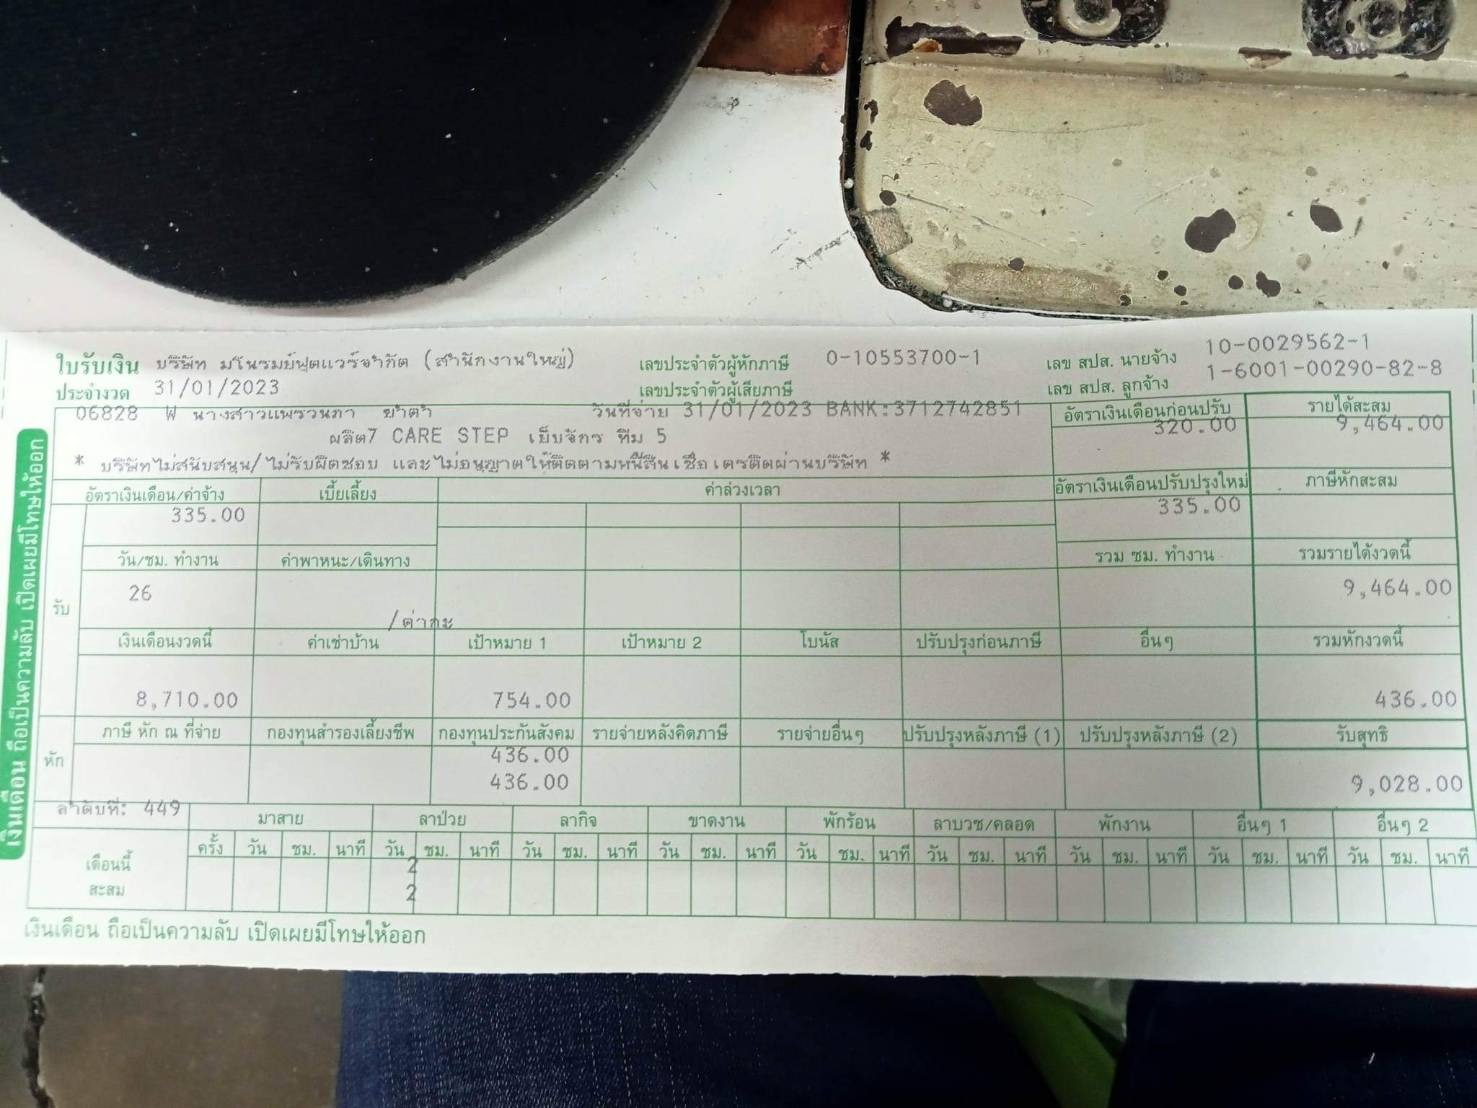 ใบรับเงิน บริษัท มโนรมย์ฟุตแวร์จำกัด (สำนักงานใหญ่) เลขประจำตัวผู้หักภาษี 0-10553700-1 เลข สปส. นายจ้าง 10-0029562-1
ประจำงวด 31/01/2023 เลขประจำตัวผู้เสียภาษี เลข สปส. ลูกจ้าง 1-6001-00290-82-8
06828 นางสาวแพรวนภา วันที่จ่าย 31/01/2023 BANK:3712742851 อัตราเงินเดือนก่อนปรับ รายได้สะสม
ผลิต7 CARE STEP เย็บจักร ทีม 5 320.00 9,464.00
* บริษัทไม่สนับสนุน/ไม่รับผิดชอบ และไม่อนุญาตให้ติดตามหนี้สินเชื่อเครดิตผ่านบริษัท *
อัตราเงินเดือน/ค่าจ้าง เบี้ยเลี้ยง ค่าล่วงเวลา อัตราเงินเดือนปรับปรุงใหม่ ภาษีหักสะสม
335.00 335.00
วัน/ชม. ทำงาน ค่าพาหนะ/เดินทาง รวม ชม. ทำงาน รวมรายได้งวดนี้
รับ 26 9,464.00
/ค่ากะ
เงินเดือนงวดนี้ ค่าเช่าบ้าน เป้าหมาย 1 เป้าหมาย 2 โบนัส ปรับปรุงก่อนภาษี อื่นๆ รวมหักงวดนี้
8,710.00 754.00 436.00
ภาษี หัก ณ ที่จ่าย กองทุนสำรองเลี้ยงชีพ กองทุนประกันสังคม รายจ่ายหลังคิดภาษี รายจ่ายอื่นๆ ปรับปรุงหลังภาษี (1) ปรับปรุงหลังภาษี (2) รับสุทธิ
หัก 436.00
436.00 9,028.00
ลำดับที่: 449 มาสาย ลาป่วย ลากิจ ขาดงาน พักร้อน ลาบวช/คลอด พักงาน อื่นๆ 1 อื่นๆ 2
ครั้ง วัน ชม. นาที วัน ชม. นาที วัน ชม. นาที วัน ชม. นาที วัน ชม. นาที วัน ชม. นาที วัน ชม. นาที วัน ชม. นาที วัน ชม. นาที
เดือนนี้ 2
สะสม 2
เงินเดือน ถือเป็นความลับ เปิดเผยมีโทษให้ออก
เงินเดือน ถือเป็นความลับ เปิดเผยมีโทษให้ออก